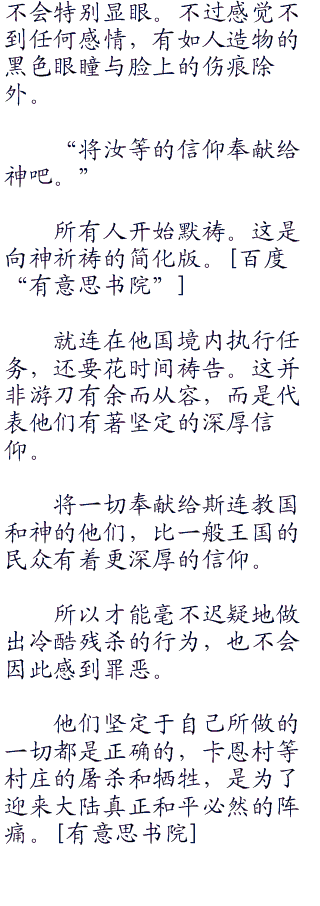 不会特别显眼。不过感觉不
到任何感情，有如人造物的
黑色眼瞳与脸上的伤痕除
外。
“将汝等的信仰奉献给
神吧。”
所有人开始默祷。这是
向神祈祷的简化版。[百度
“有意思书院”]
就连在他国境内执行任
务，还要花时间祷告。这并
非游刃有余而从容，而是代
表他们有著坚定的深厚信
仰。
将一切奉献给斯连教国
和神的他们，比一般王国的
民众有着更深厚的信仰。
所以才能毫不迟疑地做
出冷酷残杀的行为，也不会
因此感到罪恶。
他们坚定于自己所做的
一切都是正确的，卡恩村等
村庄的屠杀和牺牲，是为了
迎来大陆真正和平必然的阵
痛。[有意思书院]